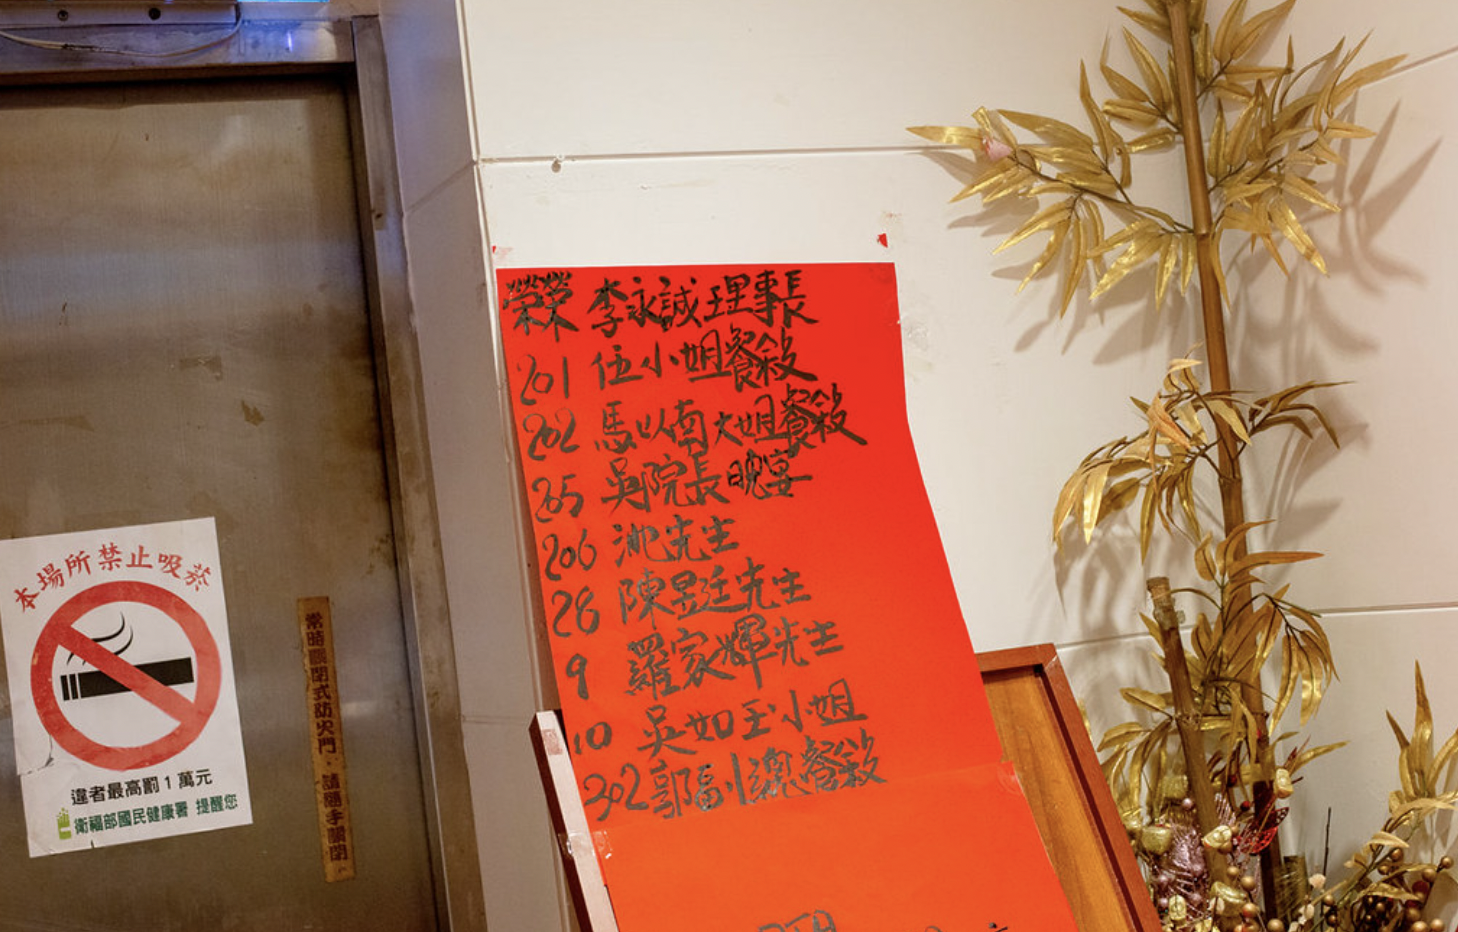 本場所禁止吸菸
違者最高罰1萬元
衛福部國民健康署 提醒您
常時關閉式防火門、請隨手關閉
榮榮 李永誠理事長
201 伍小姐餐敘
202 馬以南大姐餐敘
205 吳院長晚宴
206 沈先生
28 陳昱廷先生
9 羅家輝先生
10 吳如玉小姐
302 郭副總餐敘